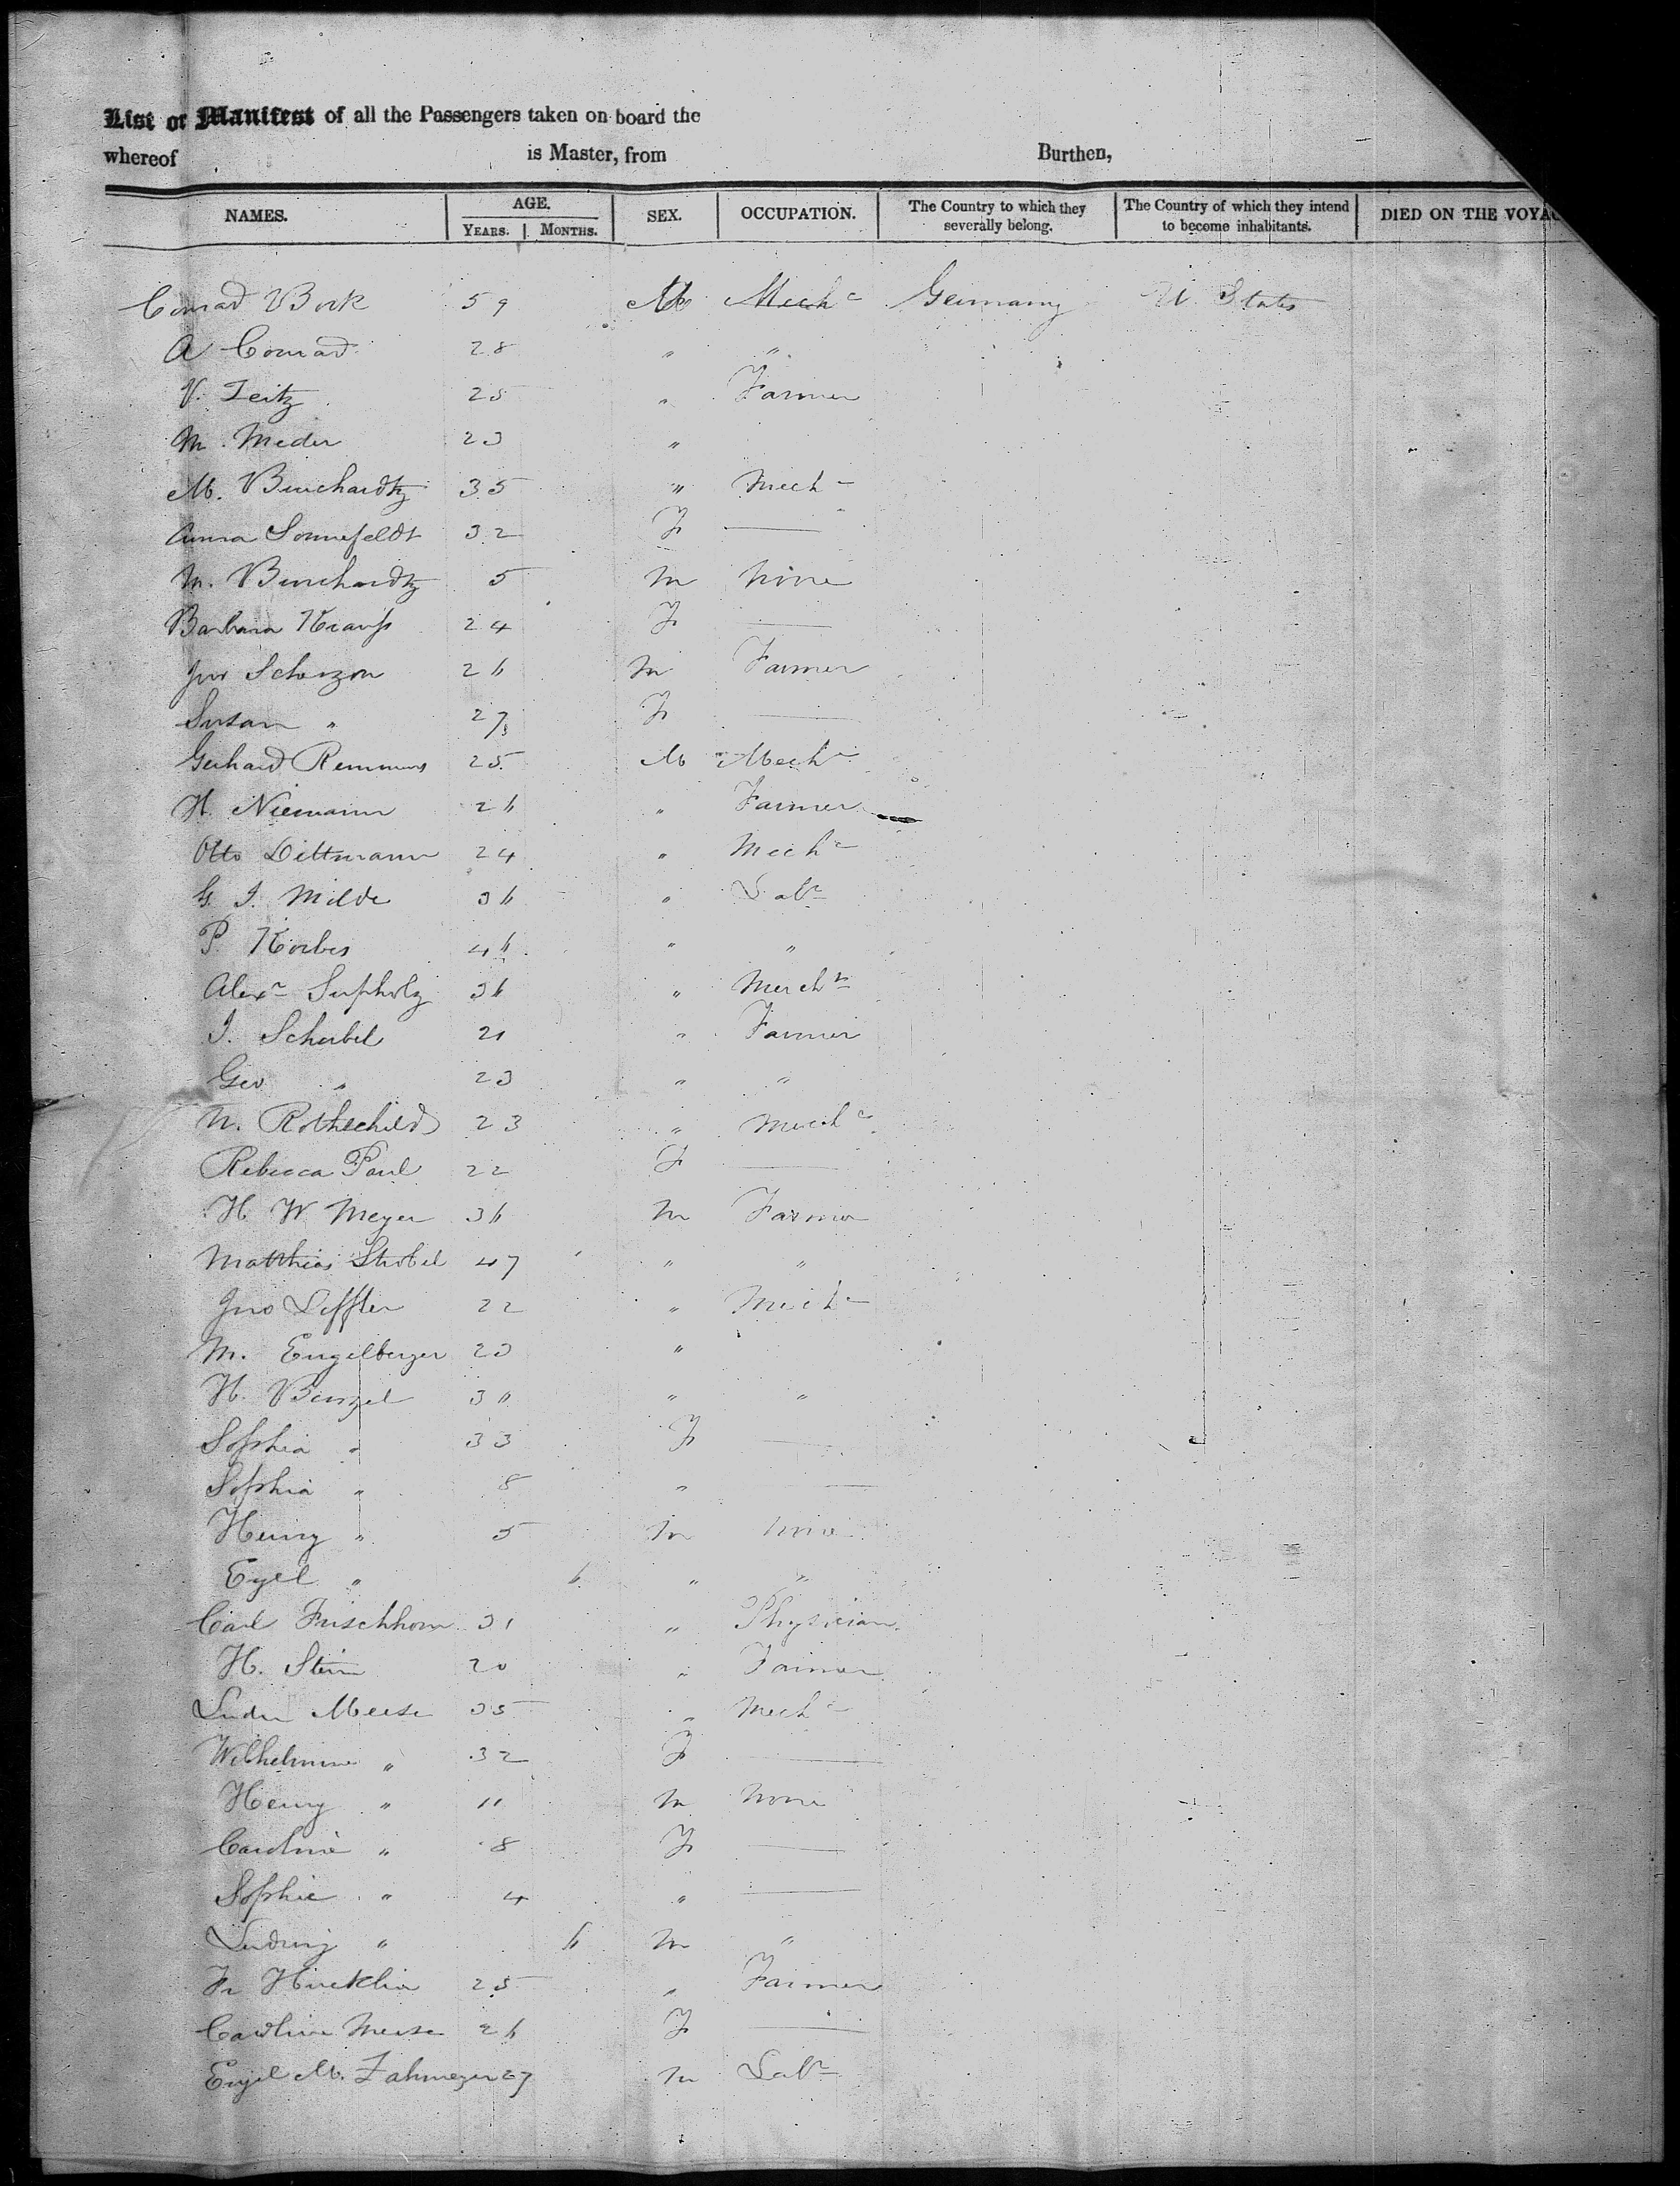 List or Manifest of all the Passengers taken on board the
whereof is Master, from Burthen,
NAMES. AGE. YEARS. MONTHS. SEX. OCCUPATION. The Country to which they severally belong. The Country of which they intend to become inhabitants. DIED ON THE VOYA
Conrad Bork 59 M Mechc Germany U. States
A Conrad 28 " "
V. Zeitz 25 " Farmer
M. Meder 23 "
M. Burchardtz 35 " Mechc
Anna Sonnefeldt 32 F —
M. Burchardtz 5 M None
Barbara Krauss 24 F —
Jno Scherzon 26 M Farmer
Susan " 27 F —
Gerhard Remmers 25 M Mechc
H. Niemann 26 " Farmer
Otto Dittmann 24 " Mechc
G. I. Milde 36 " Labr
P. Korbes 46 " "
Alexr Supholz 36 " Mercht
I. Scherbel 21 " Farmer
Geo " 23 " "
N. Rothschild 23 " Mechc
Rebecca Paul 22 F —
H. W Meyer 36 M Farmer
Matthias Strobel 47 " "
Jno Leffler 22 " Mechc
M. Engelberger 23 "
H. Benzel 3 " "
Sophia " 33 F —
Sophia " 8 " —
Henry " 5 M None
Egel " 6 " "
Carl Frischhorn 31 " Physician
H. Stein 20 " Farmer
Luder Meese 35 " Mechc
Wilhelmine " 32 F —
Henry " 11 M None
Caroline " 8 F —
Sophie " 4 " —
Ludwig " 6 M "
Fr 25 " Farmer
Caroline Meese 26 F —
Engel M. Zahmezer 27 M Labr